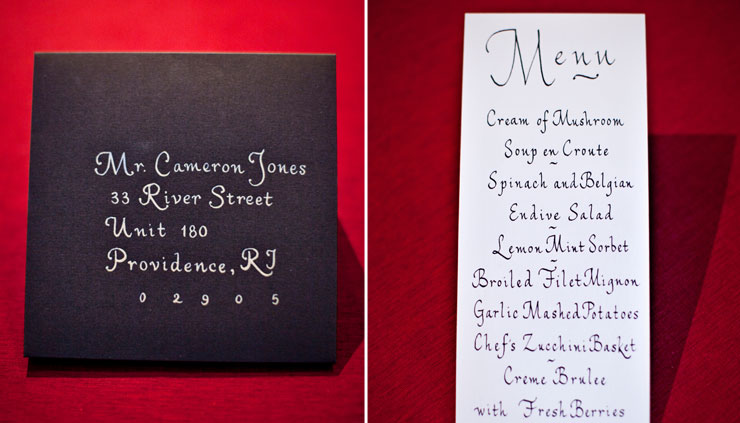 Mr. Cameron Jones
33 River Street
Unit 180
Providence, RI
02905
Menu
Cream of Mushroom
Soup en Croute
~
Spinach and Belgian
Endive Salad
~
Lemon Mint Sorbet
~
Broiled Filet Mignon
Garlic Mashed Potatoes
Chef's Zucchini Basket
~
Creme Brulee
with Fresh Berries